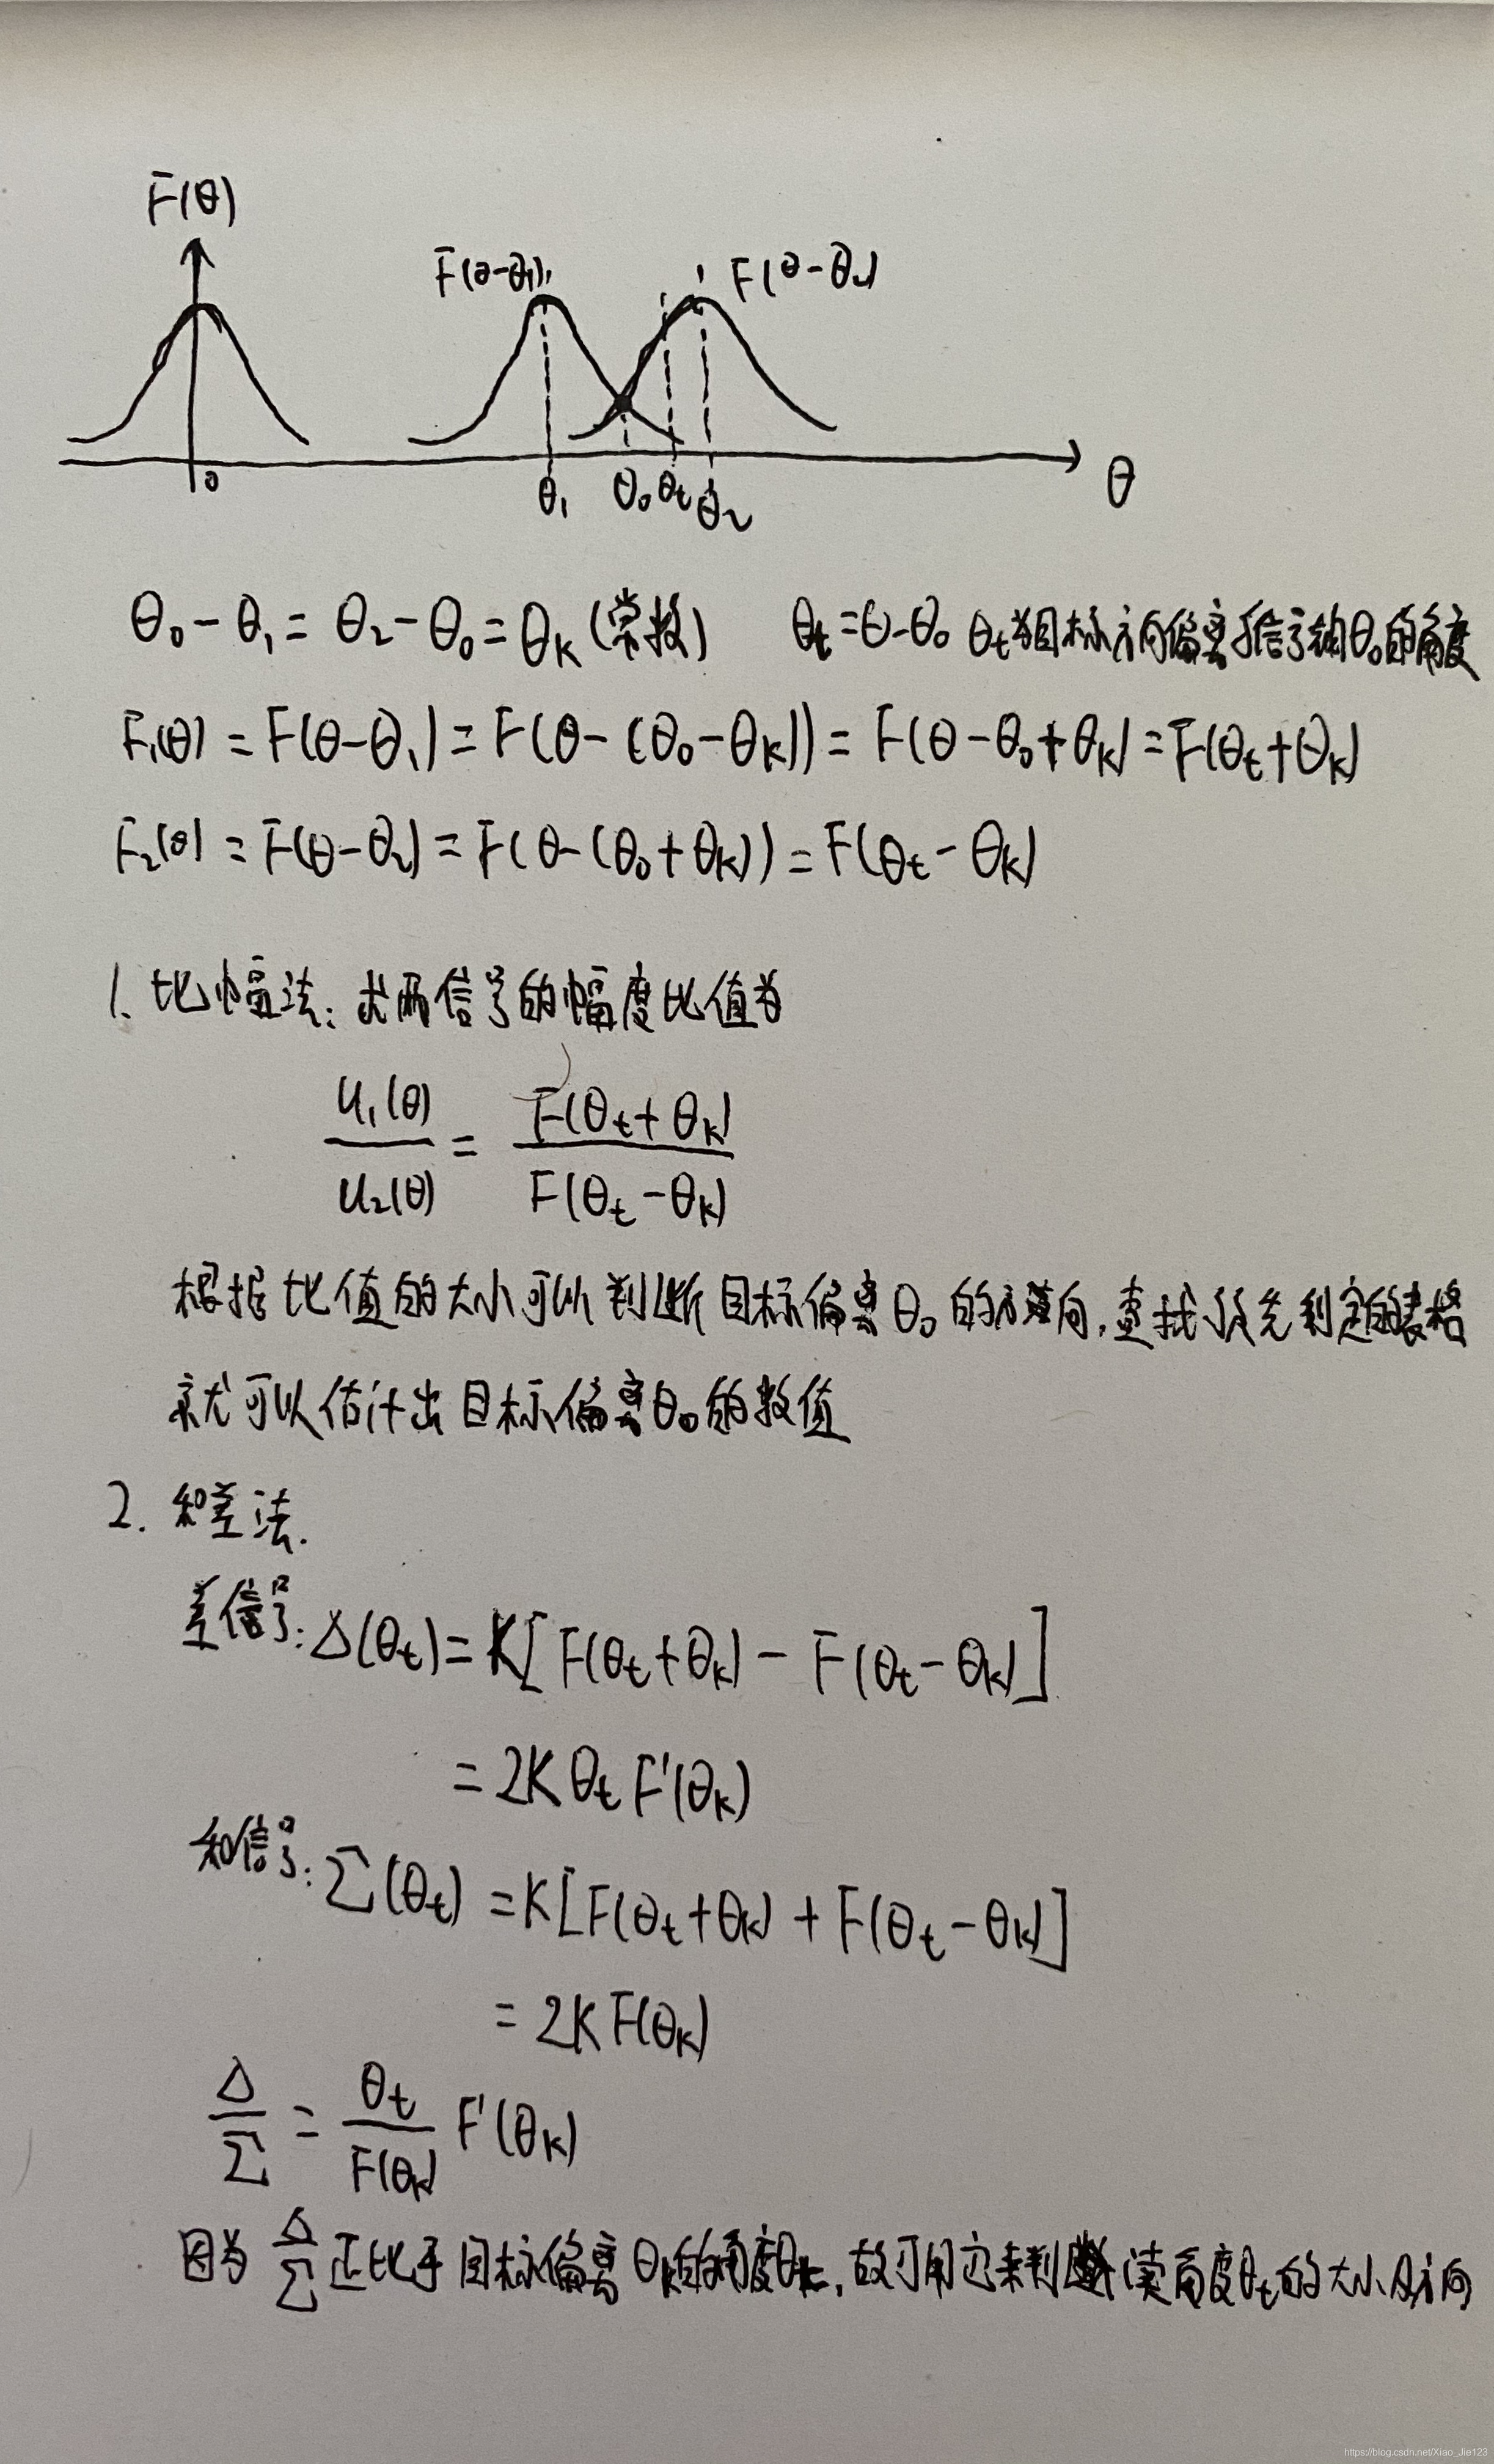 F(θ)
F(θ-θ₁)
F(θ-θ₂)
0
θ₁ θ₀ θt θ₂
θ
θ₀-θ₁=θ₂-θ₀=θk(常数) θt=θ-θ₀ θt为目标方向偏离等信号轴θ₀的角度
F₁(θ)=F(θ-θ₁)=F(θ-(θ₀-θk))=F(θ-θ₀+θk)=F(θt+θk)
F₂(θ)=F(θ-θ₂)=F(θ-(θ₀+θk))=F(θt-θk)
1. 比幅法: 求两信号的幅度比值为
u₁(θ)/u₂(θ) = F(θt+θk)/F(θt-θk)
根据比值的大小可以判断目标偏离θ₀的方向,查找预先制定的表格
就可以估计出目标偏离θ₀的数值
2. 和差法.
差信号: Δ(θt)=K[F(θt+θk)-F(θt-θk)]
=2KθtF'(θk)
和信号: Σ(θt)=K[F(θt+θk)+F(θt-θk)]
=2KF(θk)
Δ/Σ = θt/F(θk) F'(θk)
因为 Δ/Σ 正比于目标偏离θk的角度θt,故可用它来判读角度θt的大小及方向
https://blog.csdn.net/Xiao_Jie123